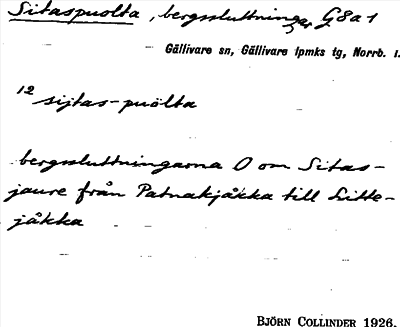 Sitaspuolta, bergssluttningar G8a1
Gällivare sn, Gällivare lpmks tg, Norrb. l.
12 sijtas-puolta
bergssluttningarna O om Sitas-
jaure från Patnakjåkka till Litte-
jåkka
BJÖRN COLLINDER 1926.